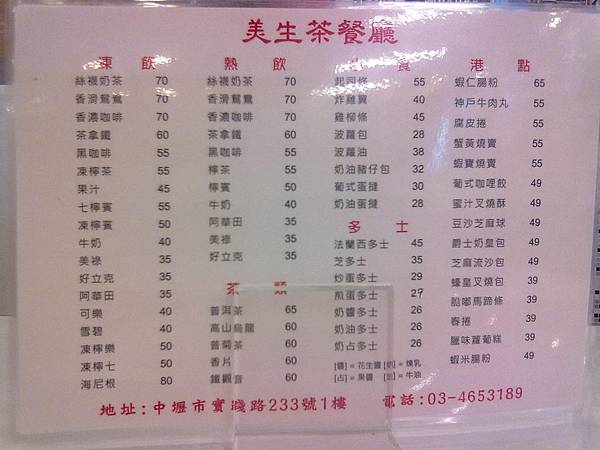 美生茶餐廳
凍飲
絲襪奶茶 70
香滑鴛鴦 70
香濃咖啡 70
茶拿鐵 60
黑咖啡 55
凍檸茶 55
果汁 45
七檸賓 55
凍檸賓 50
牛奶 40
美祿 35
好立克 35
阿華田 35
可樂 40
雪碧 40
凍檸樂 50
凍檸七 50
海尼根 80
熱飲
絲襪奶茶 70
香滑鴛鴦 70
香濃咖啡 70
茶拿鐵 60
黑咖啡 55
檸茶 55
檸賓 50
牛奶 40
阿華田 35
美祿 35
好立克 35
茶類
普洱茶 65
高山烏龍 60
普菊茶 60
香片 60
鐵觀音 60
食
起司條 55
炸雞翼 40
雞柳條 45
波蘿包 28
波蘿油 38
奶油豬仔包 32
葡式蛋撻 30
奶油蛋撻 28
多士
法蘭西多士 45
芝多士 35
炒蛋多士 29
煎蛋多士 27
奶醬多士 26
奶油多士 26
奶占多士 26
[醬]=花生醬 [奶]=煉乳
[占]=果醬 [油]=牛油
港點
蝦仁腸粉 65
神戶牛肉丸 55
腐皮捲 55
蟹黃燒賣 55
蝦寶燒賣 55
葡式咖哩餃 49
蜜汁叉燒酥 49
豆沙芝麻球 49
爵士奶皇包 49
芝麻流沙包 49
蠔皇叉燒包 39
脆嘟馬蹄條 39
春捲 39
臘味蘿蔔糕 39
蝦米腸粉 49
地址:中壢市實踐路233號1樓 電話:03-4653189